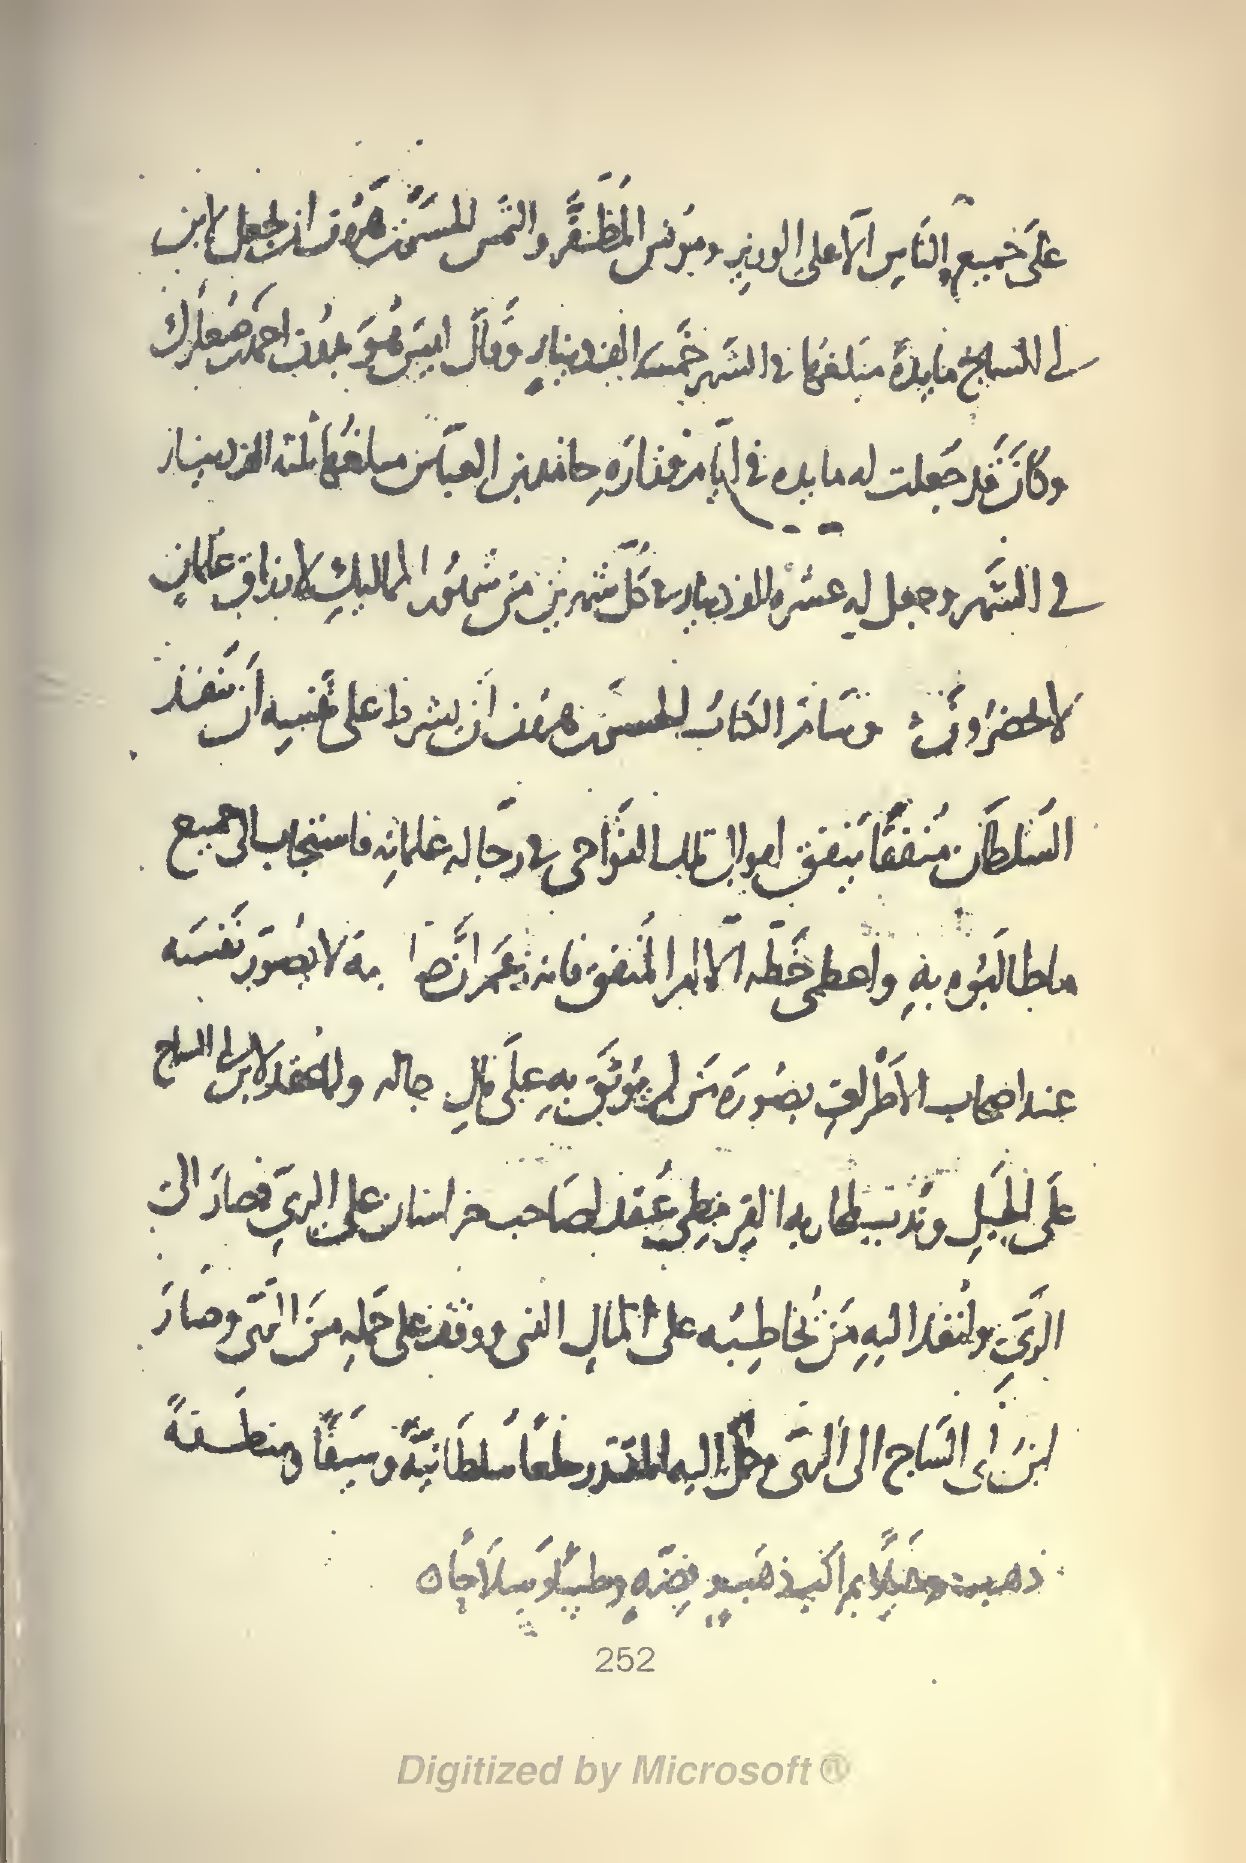 على جميع الناس الا على الوزير ومونس المظفر والتمس الحسن بن هرون ان يجعل لابن
ابي الساج مايدة مبلغها في الشهر خمسة الف دينار وقال ليس هو بدون احمد بن صعلوك
وكان قد جعلت له مايده في ايام وزارة حامد بن العباس مبلغها ثلثة الف دينار
في الشهر وجعل له عشرة الف دينار في كل شهرين من شهور المماليك لارزاق غلمان
لا يحضرون وسام الكتاب الحسن بن هرون ان يشرط على نفسه ان ينفذ
السلطان منفقا ينفق اموال تلك النواحي في رجاله وغلمانه فاستجاب الى جميع
ما طالبوه به واعطى خطه الا امر المنفق فانه زعم ان صاحبه لا يصور نفسه
عند اصحاب الاطراف بصورة من لم يوثق به على مال رجاله ولما عقد لابن ابي الساج
على الجبل وندب لمحاربه القرمطي عقد لصاحب خراسان على الري فصار الى
الري وانفذ اليه من يخاطبه على المال الذي ووقف على حمله من الري وصار
ابن ابي الساج الى الري وحمل اليه المقتدر خلعا سلطانية وسيفا ومنطقة
ذهب وخيلا بمراكب ذهب وفضه وطيبا وسلاحا ه
252
Digitized by Microsoft ®